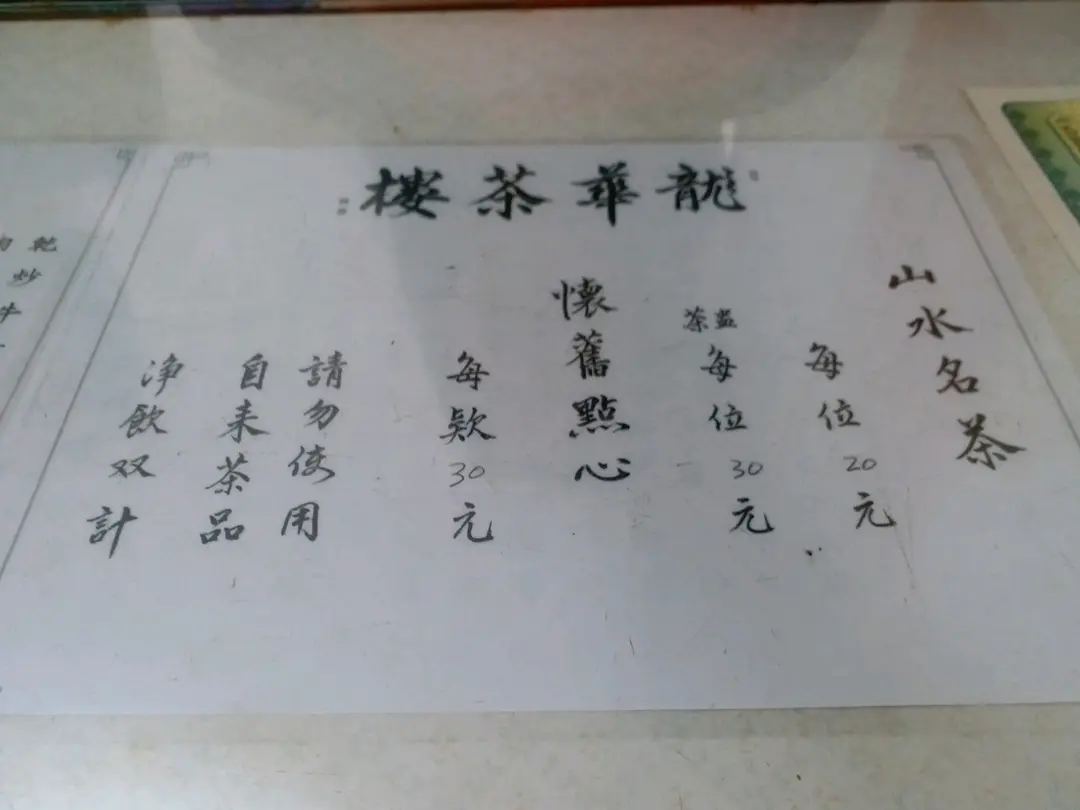 龍華茶楼
山水名茶
每位20元
茶盅
每位30元
懷舊點心
每款30元
請勿使用
自来茶品
净飲双計
乾炒牛